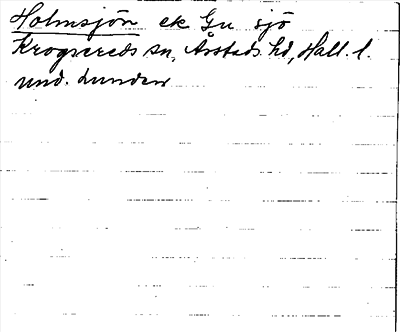 Holmsjön ek Gu sjö
Krogsereds sn, Årstads hd, Hall. l.
und. Lunden